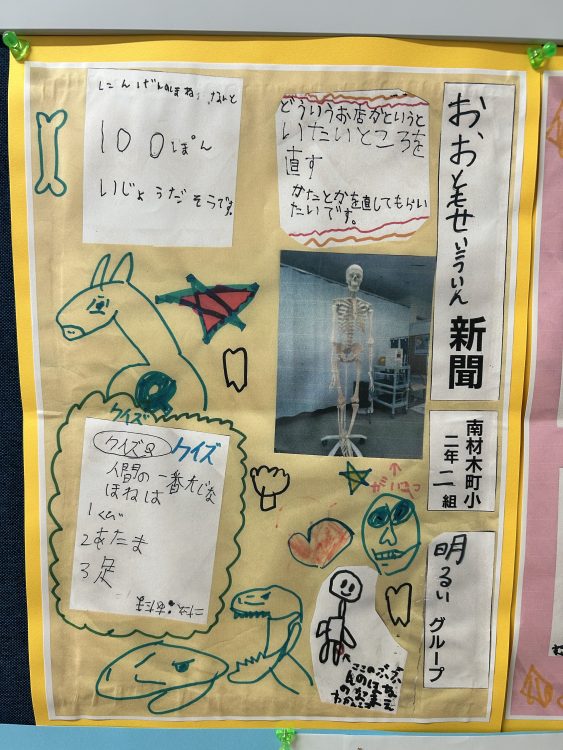 おおともせいこういん 新聞
南材木町小
二年二組
明るいグループ
どういうお店かというと
いたいところを
直す
かたとかを直してもらい
たいです。
にんげんのほねは なんと
100ぽん
いじょうだ そうです。
クイズ
クイズQ クイズ
人間の一番大じな
ほねは
1くび
2あたま
3足
がいこつ
ここのぶぶ